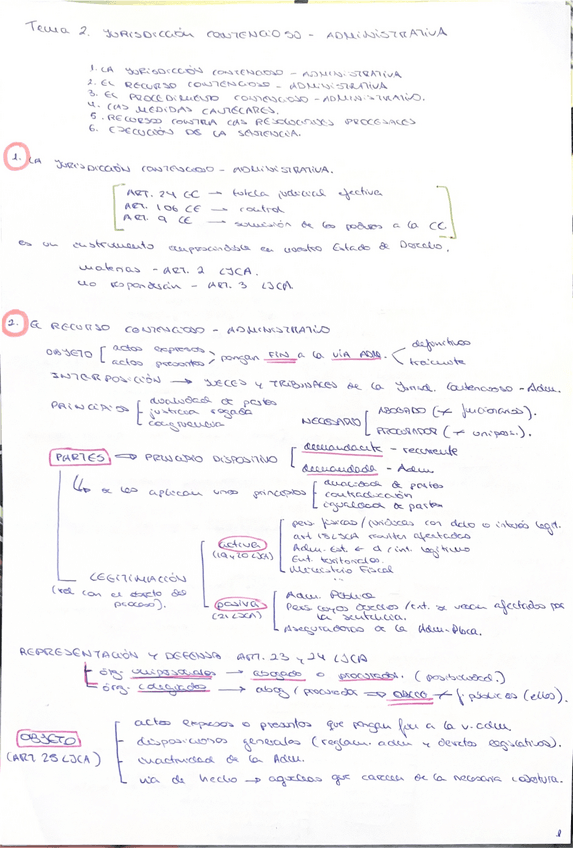 Tema 2. JURISDICCIÓN CONTENCIOSO - ADMINISTRATIVA
1. LA JURISDICCIÓN CONTENCIOSO - ADMINISTRATIVA
2. EL RECURSO CONTENCIOSO - ADMINISTRATIVA
3. EL PROCEDIMIENTO CONTENCIOSO - ADMINISTRATIVO.
4. LAS MEDIDAS CAUTELARES.
5. RECURSO CONTRA LAS RESOLUCIONES PROCESALES
6. EJECUCIÓN DE LA SENTENCIA.
1. LA JURISDICCIÓN CONTENCIOSO - ADMINISTRATIVA.
ART. 24 CC → tutela judicial efectiva
ART. 106 CE → control
ART. 9 CE → sumisión de los poderes a la CC
es un instrumento imprescindible en nuestro Estado de Derecho.
materias - ART. 2 LJCA.
no - ART. 3 LJCA
2. EL RECURSO CONTENCIOSO - ADMINISTRATIVO
OBJETO actos expresos, actos presuntos, pongan FIN a la VIA ADM. definitivos
trámite
INTERPOSICIÓN → JUECES Y TRIBUNALES de la Jurisd. Contencioso - Adm.
PRINCIPIOS dualidad de partes
justicia rogada
congruencia
NECESARIO ABOGADO (≠ funcionarios).
PROCURADOR (≠ uniper.).
PARTES ⇒ PRINCIPIO DISPOSITIVO demandante - recurrente
demandada - Adm
↳ se les aplican unos principios dualidad de partes
contradicción
igualdad de partes
LEGITIMACIÓN
(rel con el objeto del proceso).
activa
(19 y 20 LJCA)
pers físicas / jurídicas con dcho o interés legit.
art 18 LJCA afectados
Adm. Est. d / int. legítimo
Ent. territoriales.
Ministerio Fiscal
...
pasiva
(21 LJCA)
Adm. Pública
Pers cuyos derechos / int. se vean afectados por la sentencia.
Aseguradoras de la Adm. Pbca.
REPRESENTACIÓN Y DEFENSA ART. 23 y 24 LJCA
- órg. unipersonales → abogado o procurador. (posibilidad.)
- órg. colegiados → abog / procurador ⇒ ≠ f. públicos (ellos).
OBJETO
(ART. 25 LJCA)
actos expresos o presuntos que pongan fin a la v. adm.
- disposiciones generales (reglam. adm y decretos legislativos).
- inactividad de la Adm.
- vía de hecho → aquellas que carecen de la necesaria cobertura.
1